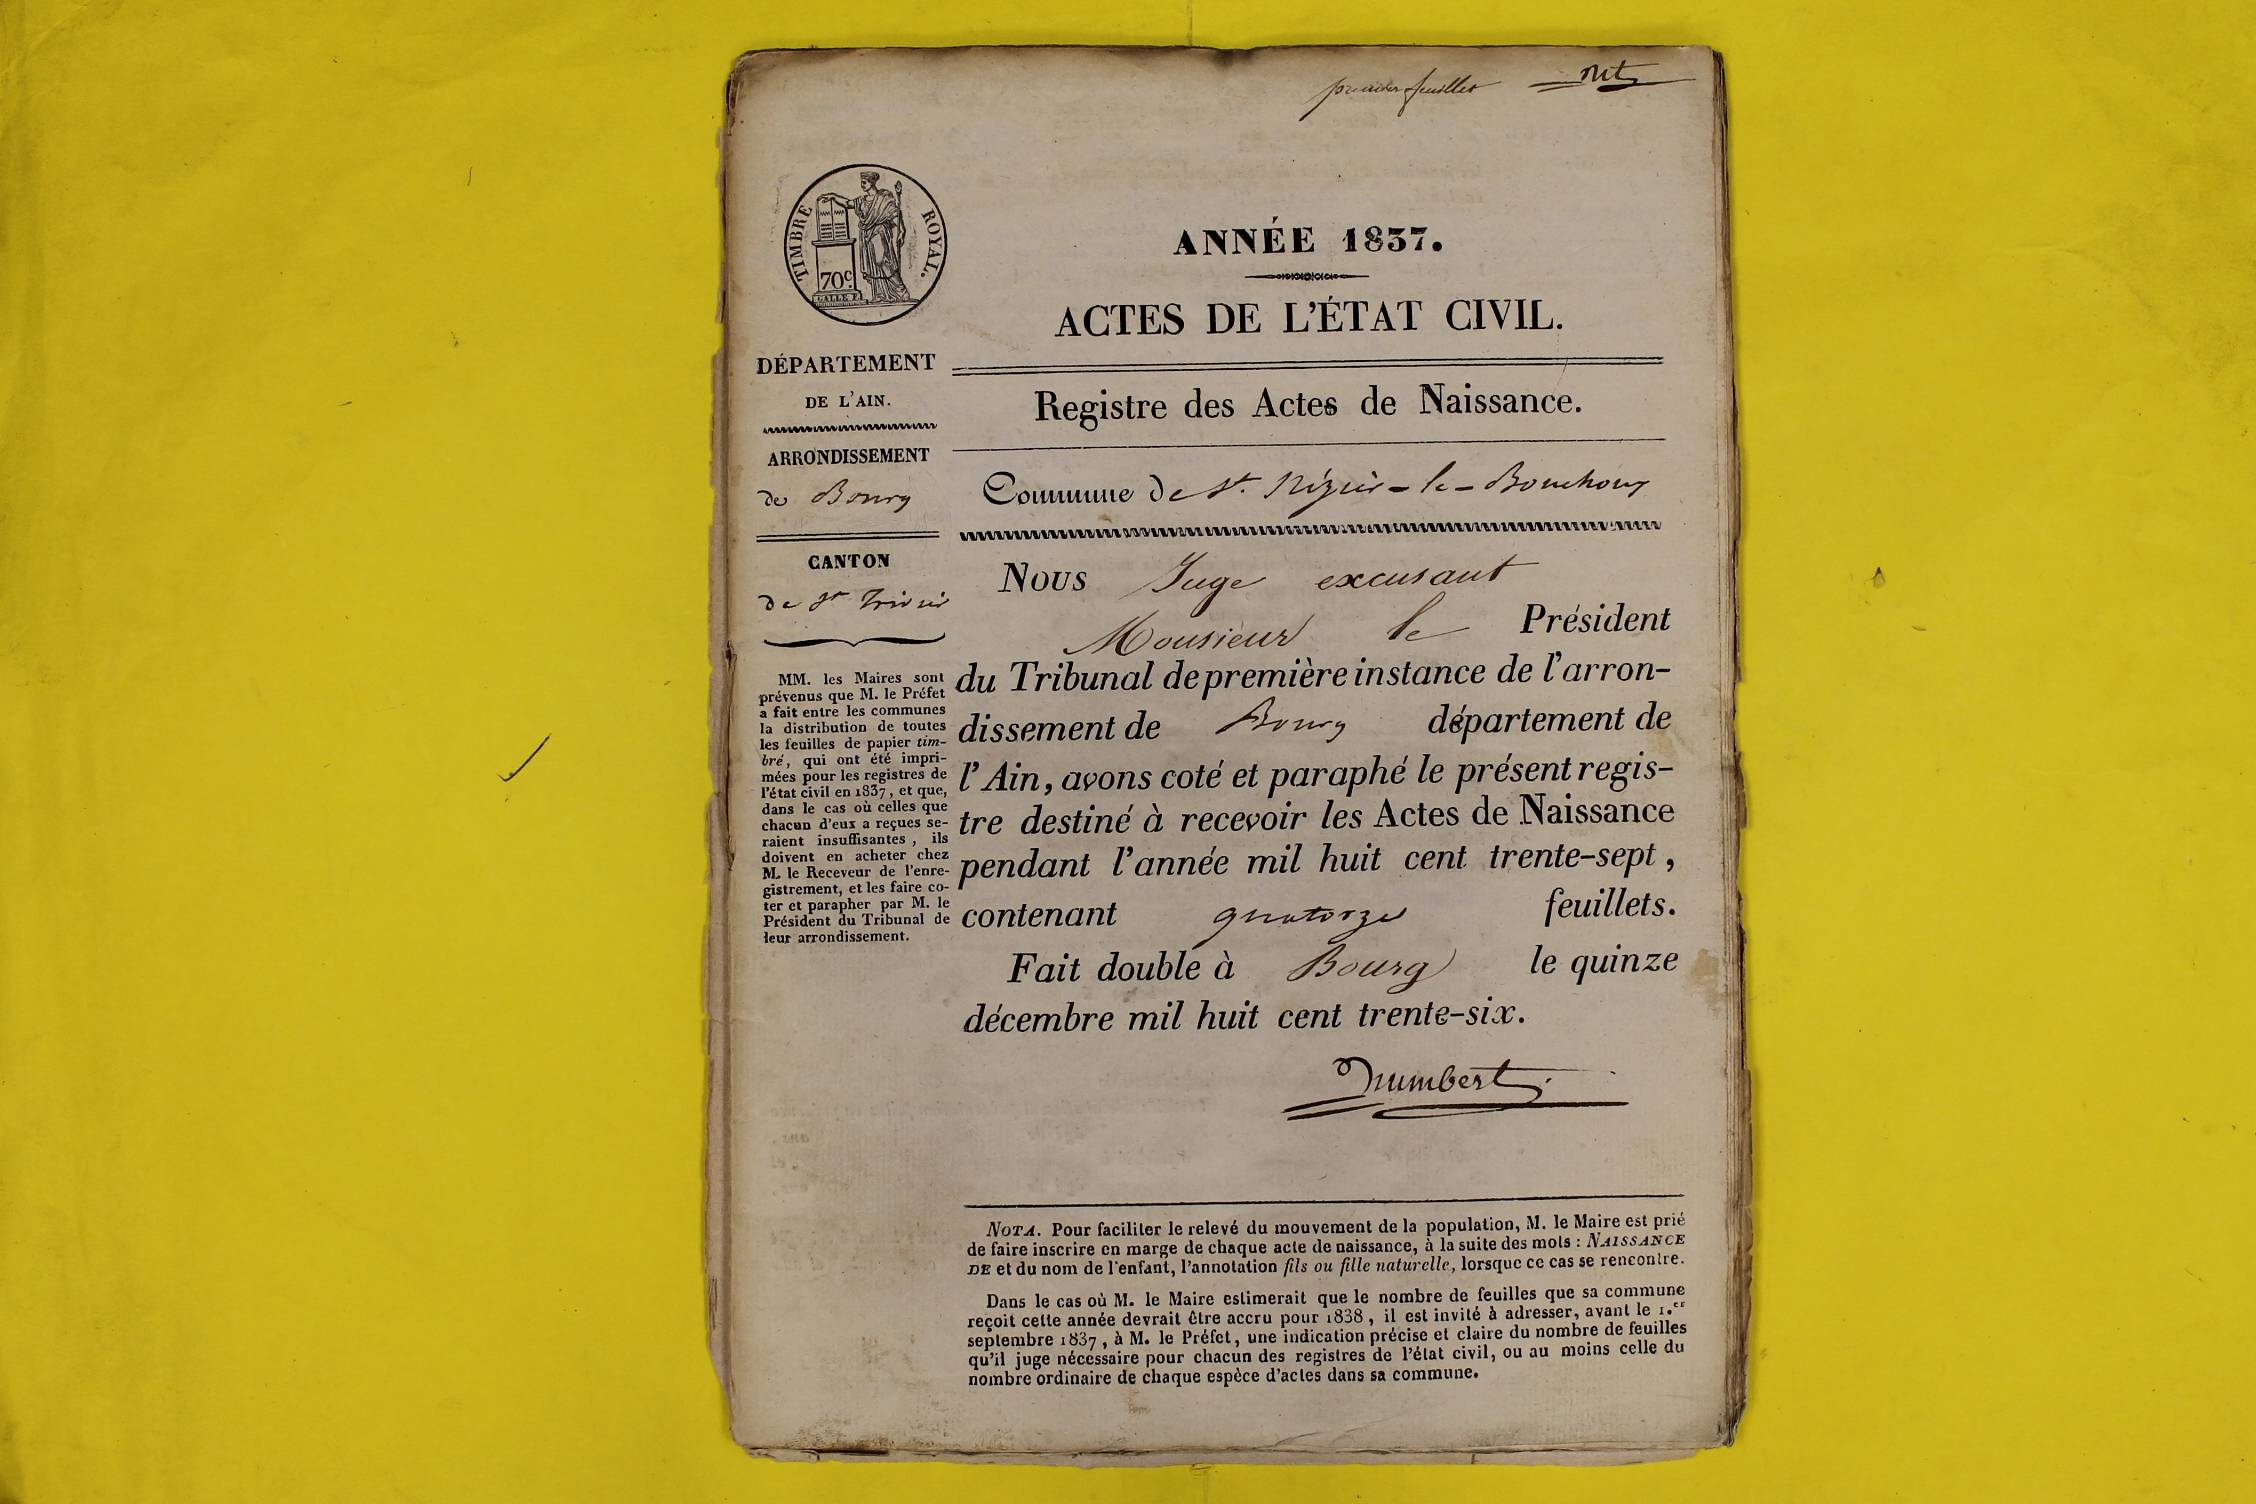 premier feuillet
TIMBRE ROYAL.
70c.
ANNÉE 1837.
ACTES DE L'ÉTAT CIVIL.
DÉPARTEMENT
DE L'AIN.
Registre des Actes de Naissance.
ARRONDISSEMENT
de Bourg
Commune de St. Nizier-le-Bouchoux
CANTON
de St Trivier
Nous Juge excusant
Monsieur le Président
du Tribunal de première instance de l'arron-
dissement de Bourg département de
l'Ain, avons coté et paraphé le présent regis-
tre destiné à recevoir les Actes de Naissance
pendant l'année mil huit cent trente-sept,
contenant quatorze feuillets.
Fait double à Bourg le quinze
décembre mil huit cent trente-six.
MM. les Maires sont
prévenus que M. le Préfet
a fait entre les communes
la distribution de toutes
les feuilles de papier tim-
bré, qui ont été impri-
mées pour les registres de
l'état civil en 1837, et que,
dans le cas où celles que
chacun d'eux a reçues se-
raient insuffisantes, ils
doivent en acheter chez
M. le Receveur de l'enre-
gistrement, et les faire co-
ter et parapher par M. le
Président du Tribunal de
leur arrondissement.
NOTA. Pour faciliter le relevé du mouvement de la population, M. le Maire est prié
de faire inscrire en marge de chaque acte de naissance, à la suite des mots : NAISSANCE
DE et du nom de l'enfant, l'annotation fils ou fille naturelle, lorsque ce cas se rencontre.
Dans le cas où M. le Maire estimerait que le nombre de feuilles que sa commune
reçoit cette année devrait être accru pour 1838, il est invité à adresser, avant le 1.er
septembre 1837, à M. le Préfet, une indication précise et claire du nombre de feuilles
qu'il juge nécessaire pour chacun des registres de l'état civil, ou au moins celle du
nombre ordinaire de chaque espèce d'actes dans sa commune.